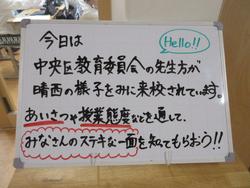 今日は
Hello!!
中央区教育委員会の先生方が
晴西の様子をみに来校されています。
あいさつや授業態度などを通して、
みなさんのステキな一面を知ってもらおう!!